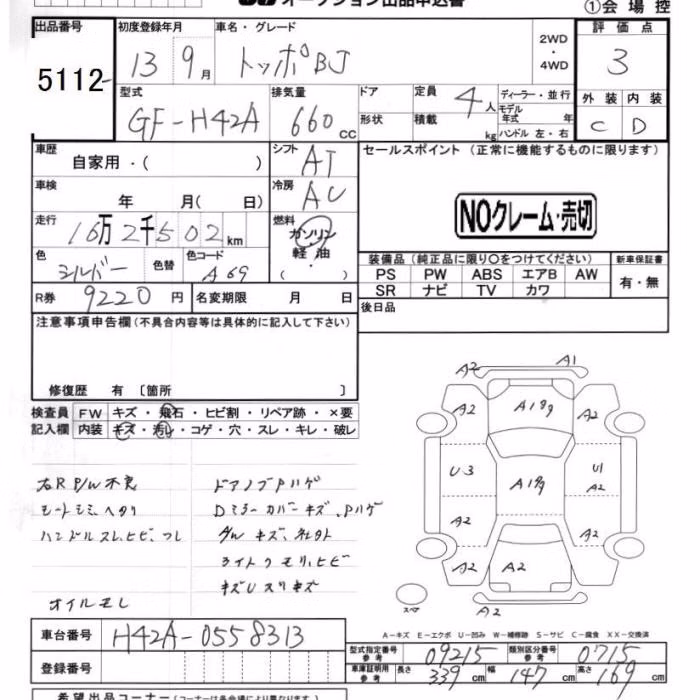 オークション出品申込書
①会場控
出品番号 初度登録年月 車名・グレード 2WD・4WD 評価点
5112 13 9月 トッポBJ 3
型式 排気量 ドア 定員 ディーラー・並行 外装 内装
GF-H42A 660CC 形状 積載 4人 kg モデル年式 年 ハンドル 左・右 C D
車歴 自家用・( ) シフト AT セールスポイント (正常に機能するものに限ります)
車検 年 月( 日) 冷房 AC
NOクレーム・売切
走行 16万2千502km 燃料 ガソリン・軽油・( )
色 シルバー 色替 色コード A69
装備品(純正品に限り○をつけてください) 新車保証書
PS PW ABS エアB AW 有・無
SR ナビ TV カワ
R券 9220円 名変期限 月 日 後日品
注意事項申告欄(不具合内容等は具体的に記入して下さい)
修復歴 有 〔箇所 〕
検査員 FW キズ・飛石・ヒビ割・リペア跡・×要
記入欄 内装 キズ・汚れ・コゲ・穴・スレ・キレ・破レ
右R P/W不良
シートシミ、ヘタリ
ハンドルスレ、ヒビ、
オイルモレ
ドアノブPハゲ
Dミラーカバーキズ、Pハゲ
キズ、
ライトクモリ、ヒビ
キズUスリキズ
A2 A1
A2 A2
U3 U1
A2
A2 A2
A2 A2
A2
スペア
A−キズ E−エクボ U−凹み W−補修跡 S−サビ C−腐食 XX−交換済
車台番号 H42A-0558313
型式指定番号 参考 09215 類別区分番号 参考 0715
登録番号
車庫証明用 参考 長さ 339cm 幅 147cm 高さ 169cm
希望出品コーナー(コーナーは各会場により異なります)